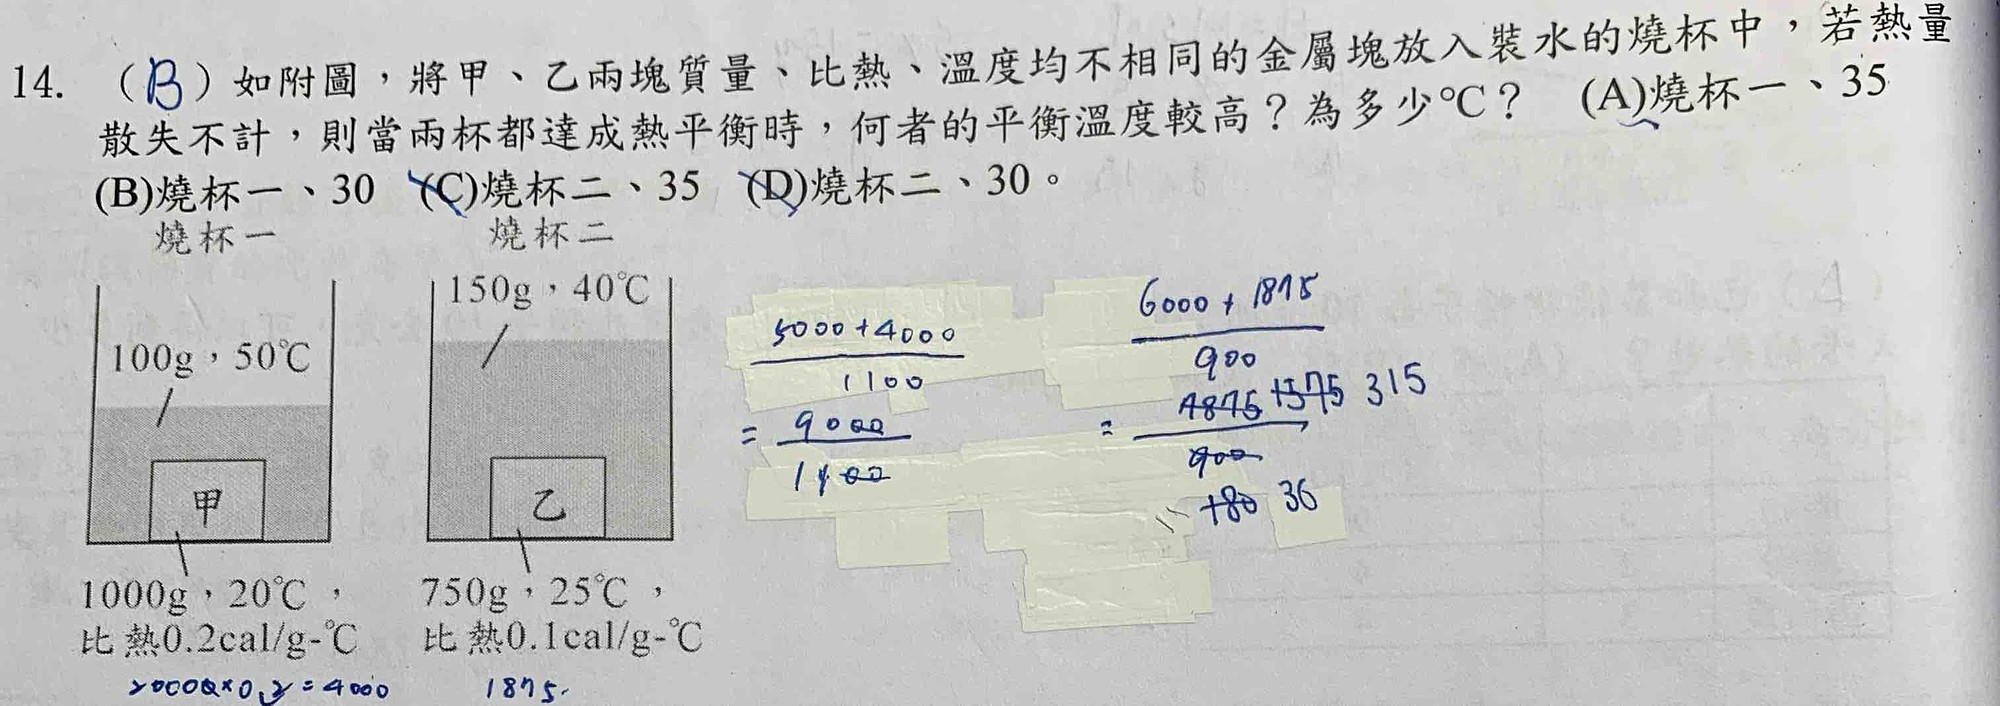 14. （B）如附圖，將甲、乙兩塊質量、比熱、溫度均不相同的金屬塊放入裝水的燒杯中，若熱量
散失不計，則當兩杯都達成熱平衡時，何者的平衡溫度較高？為多少℃？ (A)燒杯一、35
(B)燒杯一、30 (C)燒杯二、35 (D)燒杯二、30。
燒杯一 燒杯二
150g，40℃
100g，50℃
甲 乙
1000g，20℃， 750g，25℃，
比熱0.2cal/g-℃ 比熱0.1cal/g-℃
20000×0.2=4000 1875.
5000+4000
1100
= 9000
1100
6000+1875
900
= 315
900
36